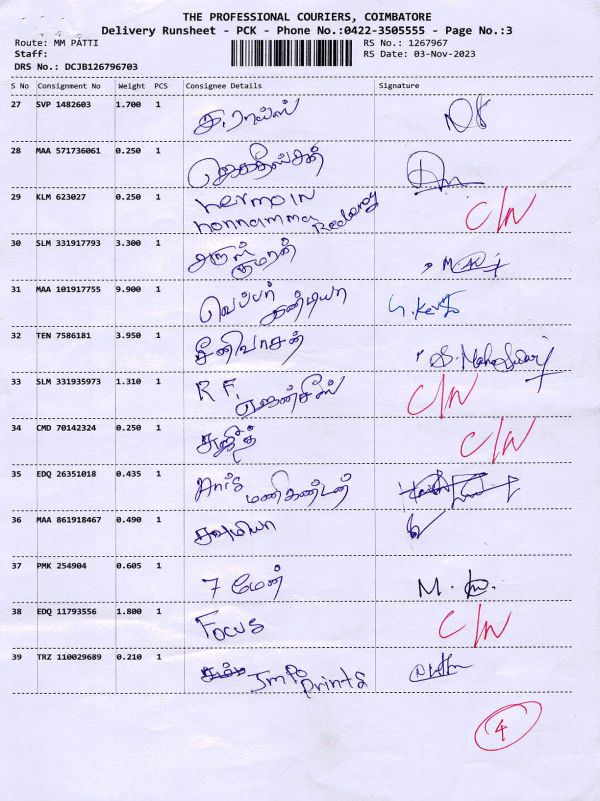 THE PROFESSIONAL COURIERS, COIMBATORE
Delivery Runsheet - PCK - Phone No.:0422-3505555 - Page No.:3
Route: MM PATTI RS No.: 1267967
Staff: RS Date: 03-Nov-2023
DRS No.: DCJB126796703
S No Consignment No Weight PCS Consignee Details Signature
27 SVP 1482603 1.700 1
28 MAA 571736061 0.250 1 ஜெகதீஸ்சன்
29 KLM 623027 0.250 1 hermoin C/N
honnamma
30 SLM 331917793 3.300 1 அருள்
குமரன்
31 MAA 101917755 9.900 1 வெப்பர்
கண்டியா
32 TEN 7586181 3.950 1 சீனிவாசன் S. Maheswari
33 SLM 331935973 1.310 1 R F. C/N
ஏஜன்சீஸ்
34 CMD 70142324 0.250 1 சுஜித் C/N
35 EDQ 26351018 0.435 1 Anis
மணிகண்டன்
36 MAA 861918467 0.490 1 சவுமியா
37 PMK 254904 0.605 1 7 மேன்
38 EDQ 11793556 1.800 1 Focus C/N
39 TRZ 110029689 0.210 1 Jmpo
prints
4